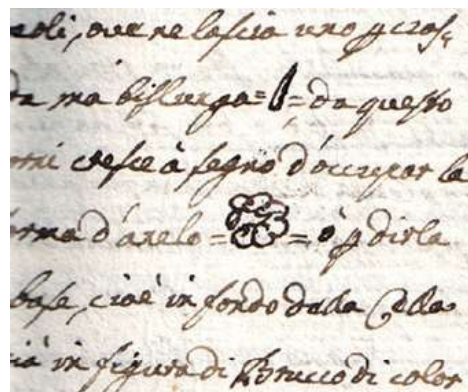 oli, ove ne lascia uno p cias,
da má bislunga = = da questo
orni cresce à segno d'occupar la
orma d'anelo = = ò p dirla
base, cioè in fondo dalla Cella
ià in figura di Brucco di color